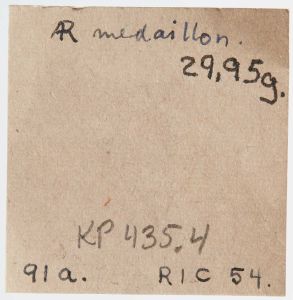 AR medaillon.
29,95g.
KP 435.4
91a. RIC 54.